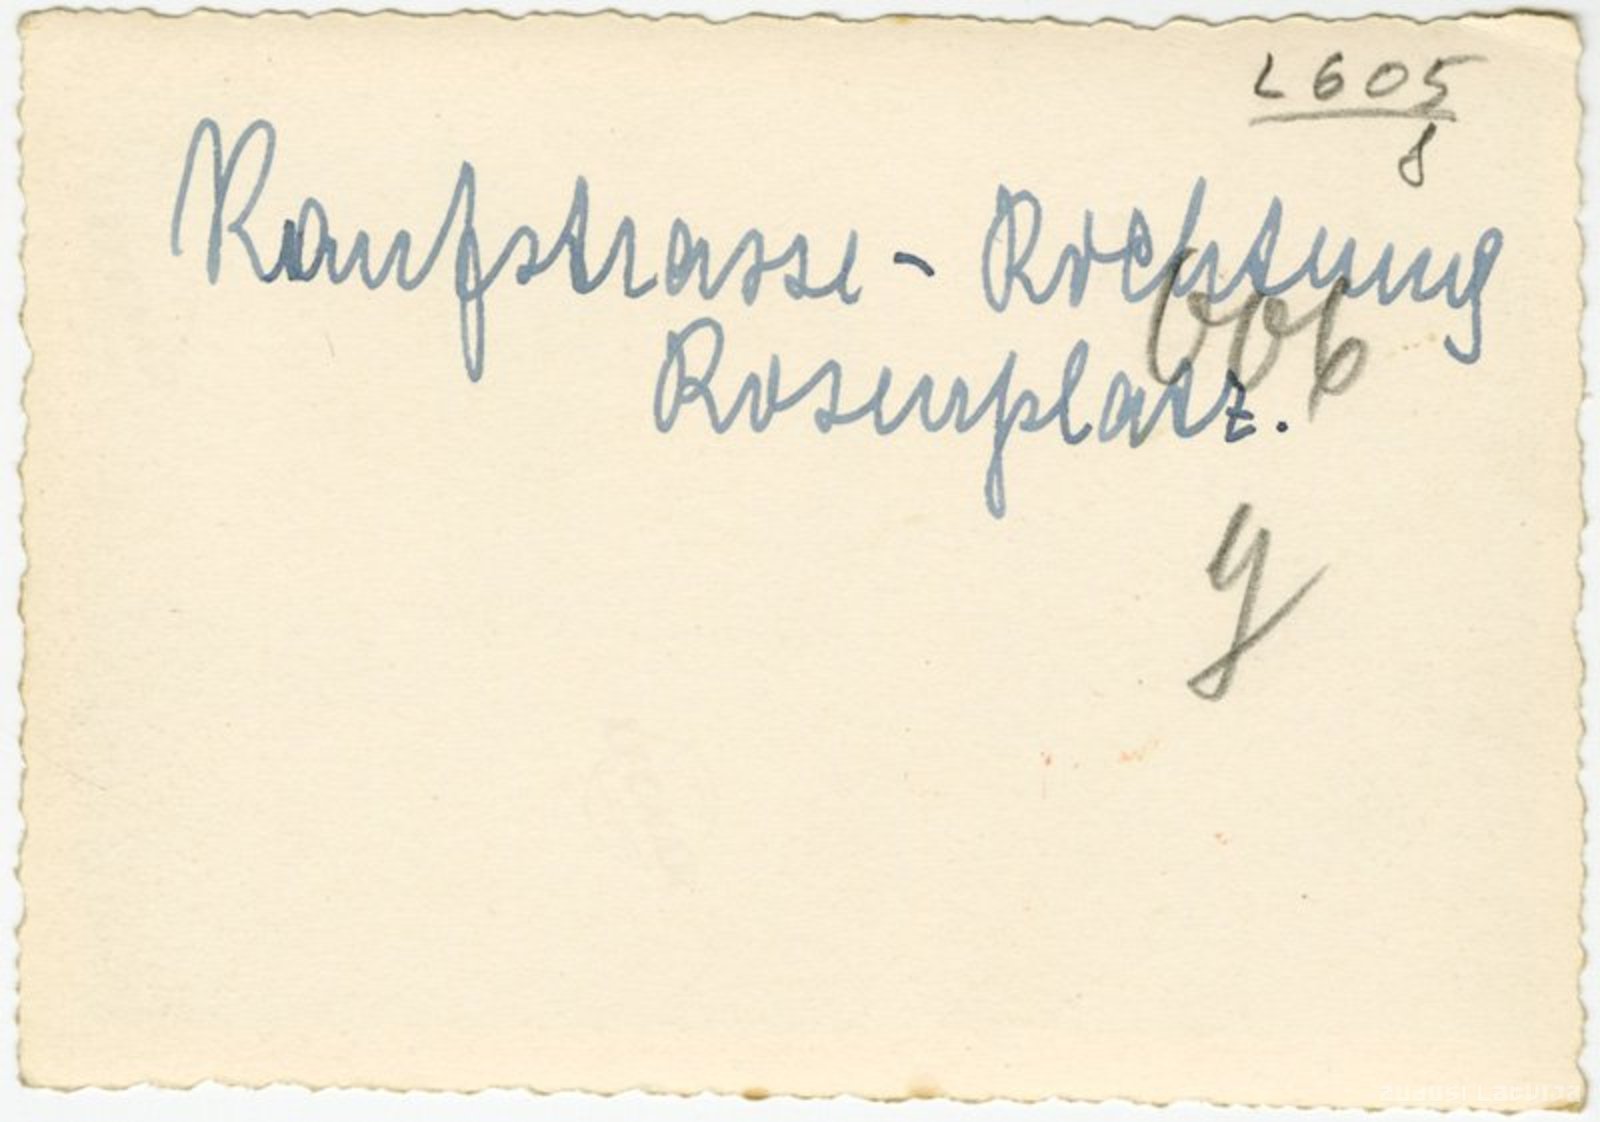 L605
8
Kaufstrasse - Richtung
Rosenplatz.
006
y
Zudusī Latvija